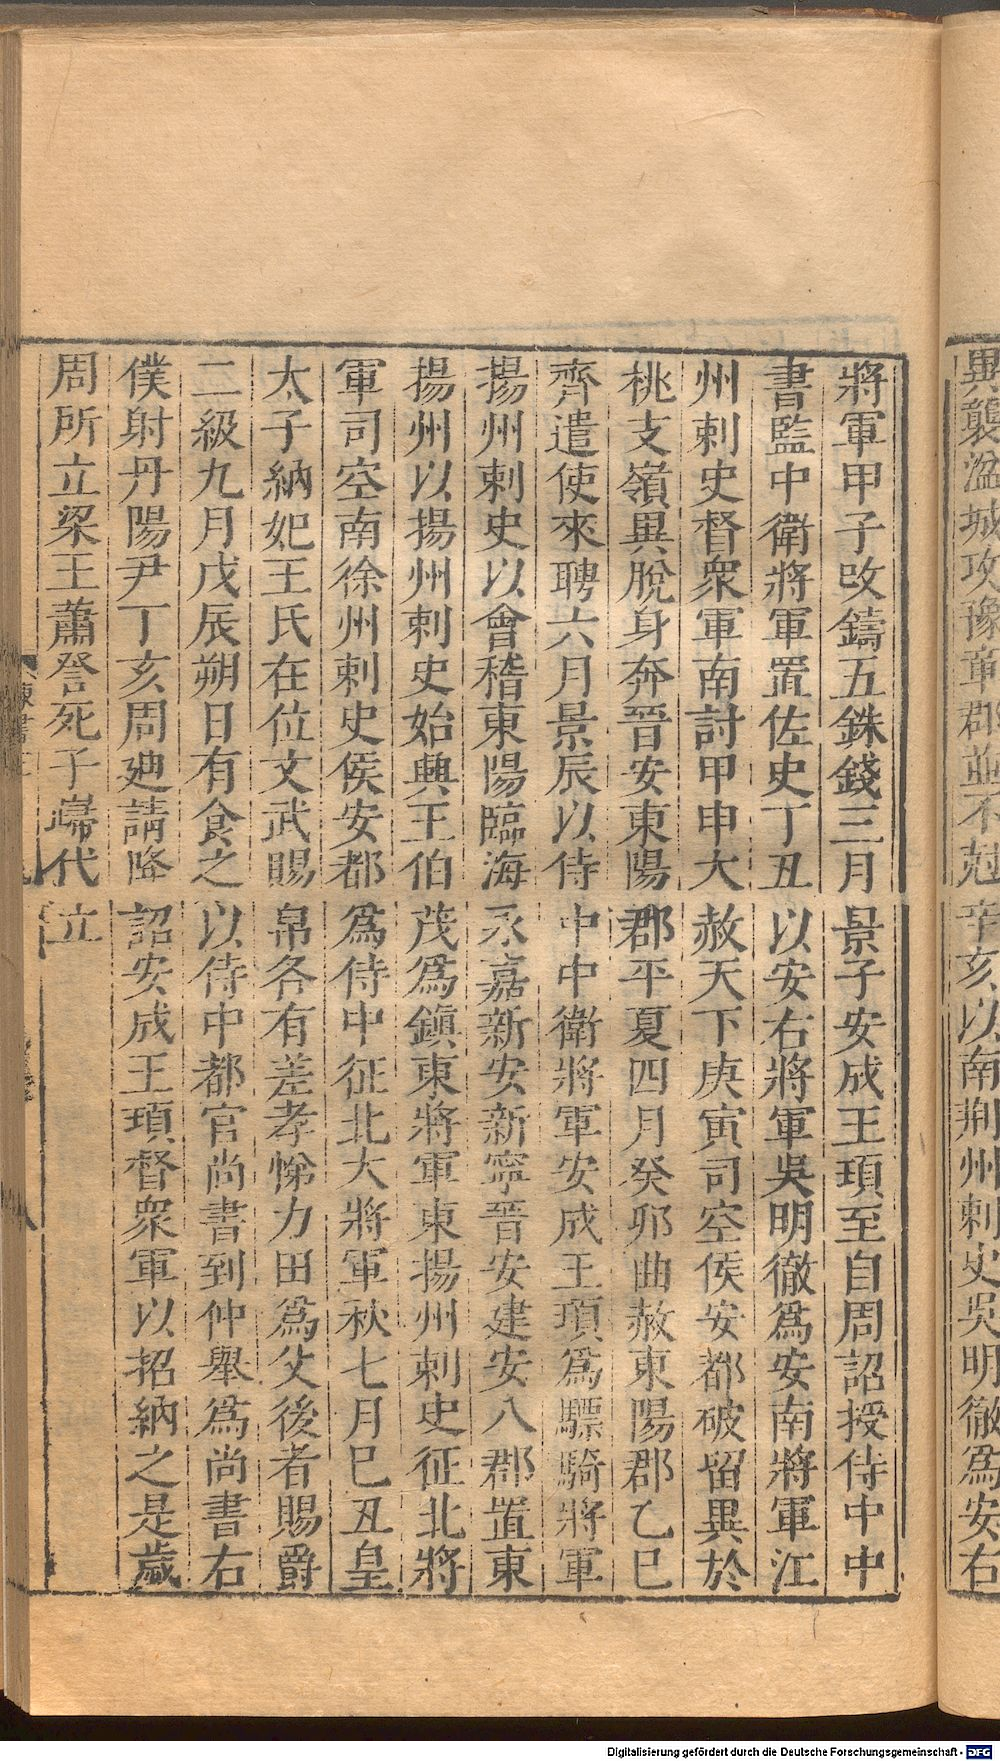 異襲湓城攻豫章郡並不尅辛亥以南荆州刺史吳明徹爲安右
將軍甲子改鑄五銖錢三月景子安成王頊至自周詔授侍中中
書監中衛將軍置佐史丁丑以安右將軍吳明徹爲安南將軍江
州刺史督衆軍南討甲申大赦天下庚寅司空侯安都破留異於
桃支嶺異脫身奔晉安東陽郡平夏四月癸夘曲赦東陽郡乙巳
齊遣使來聘六月景辰以侍中中衛將軍安成王頊爲驃騎將軍
揚州刺史以會稽東陽臨海永嘉新安新寧晉安建安八郡置東
揚州以揚州刺史始興王伯茂爲鎭東將軍東揚州刺史征北將
軍司空南徐州刺史侯安都爲侍中征北大將軍秋七月巳丑皇
太子納妃王氏在位文武賜帛各有差孝悌力田爲父後者賜爵
二級九月戊辰朔日有食之以侍中都官尚書到仲舉爲尚書右
僕射丹陽尹丁亥周廸請降詔安成王頊督衆軍以招納之是歲
周所立梁王蕭詧死子巋代立